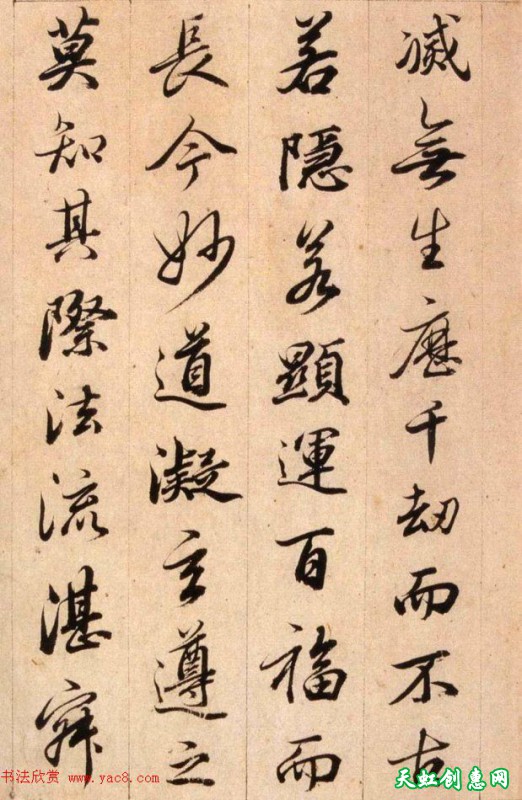 滅無生歷千劫而不古
若隱若顯運百福而
長今妙道凝玄遵之
莫知其際法流湛寂
书法欣赏 www.yac8.com
天虹创惠网